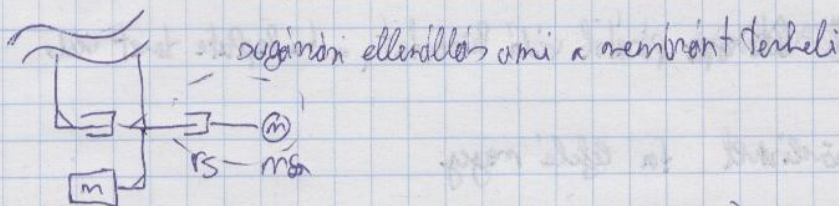 sugárzási ellenállás ami a membránt terheli
m
rs — ms
m